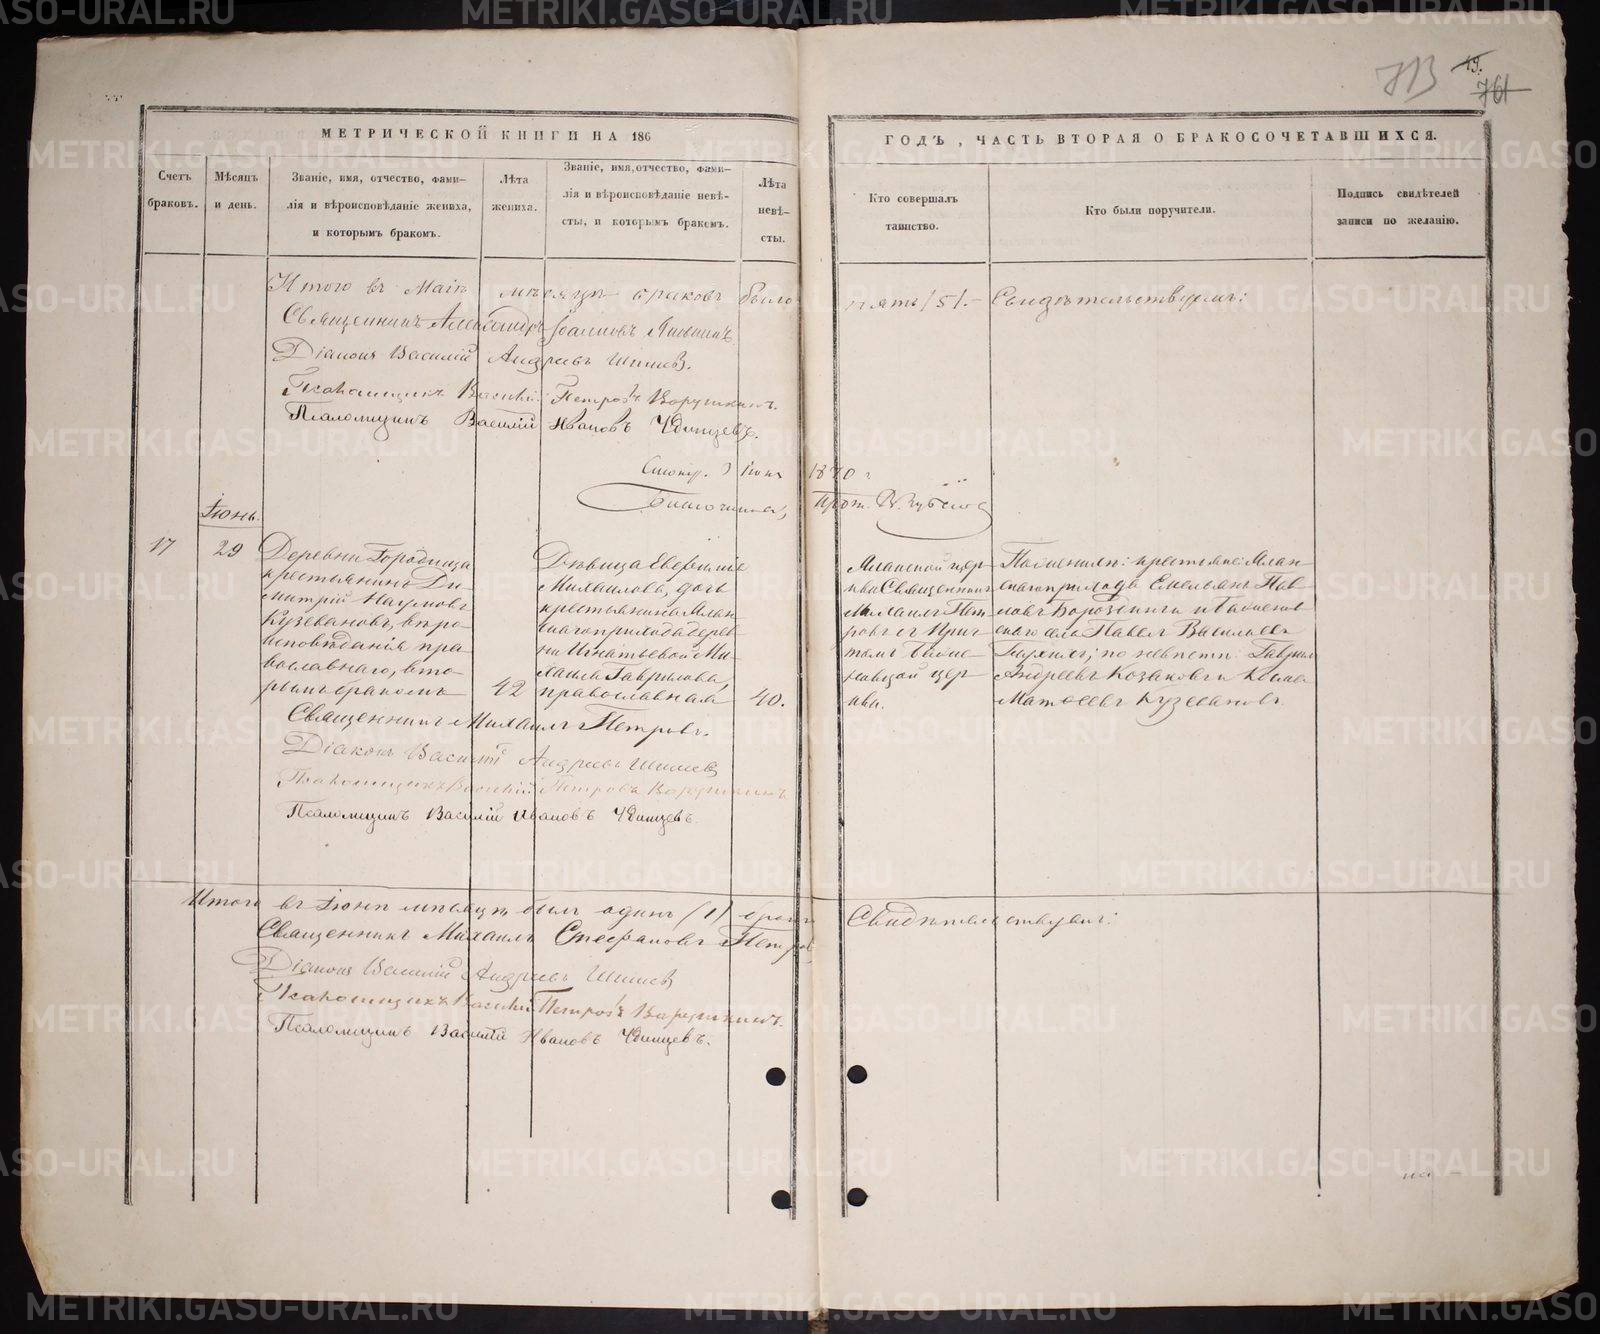 713
19.
761
МЕТРИЧЕСКОЙ КНИГИ НА 186
ГОДЪ, ЧАСТЬ ВТОРАЯ О БРАКОСОЧЕТАВШИХСЯ.
Счетъ
браковъ.
Мѣсяцъ
и день.
Званіе, имя, отчество, фами-
лія и вѣроисповѣданіе жениха,
и которымъ бракомъ.
Лѣта
жениха.
Званіе, имя, отчество, фами-
лія и вѣроисповѣданіе невѣ-
сты, и которымъ бракомъ.
Лѣта
невѣ-
сты.
Кто совершалъ
таинство.
Кто были поручители.
Подпись свидѣтелей
записи по желанію.
Итого въ Маіѣ мѣсяцѣ браковъ было пять /5/.- Свидѣтельствуемъ:
Священникъ Александръ Іоанновъ
Діаконъ Василій Андреевъ Шишев
Псаломщикъ Василій Петровъ Ворушкинъ.
Псаломщикъ Василій Ивановъ Удинцевъ.
1870 г
Благочинный, Прот.
Іюнь.
17
29
Деревни Городища
крестьянинъ Ди-
митрій Наумовъ
Кузевановъ, вѣро-
исповѣданія пра-
вославнаго, вто-
рымъ бракомъ
42
Дѣвица Евфимія
Михаилова, дочь
крестьянина Млан
скаго прихода дерев-
ни Игнатьевой Ми-
хаила Гаврилова,
православная
40.
Мланской цер-
кви Священникъ
Михаилъ Пет-
ровъ съ прич-
томъ
цер-
кви.
По женихѣ: крестьяне Млан-
скаго прихода Емельянъ Пав-
ловъ Бороздинъ и
скаго села Павелъ Васильевъ
по невѣстѣ Гаврилъ
Андреевъ Козаковъ и Косма
Матѳеевъ Кузевановъ.
Священникъ Михаилъ Петровъ.
Діаконъ Василій Андреевъ Шишев
Псаломщикъ Василій Петровъ Ворушкинъ
Псаломщикъ Василій Ивановъ Удинцевъ.
Итого въ Іюнѣ мѣсяцѣ былъ одинъ (1) бракъ Свидѣтельствуемъ:
Священникъ Михаилъ Стефановъ Петров
Діаконъ Василій Андреевъ Шишев
Псаломщикъ Василій Петровъ Ворушкинъ.
Псаломщикъ Василій Ивановъ Удинцевъ.
METRIKI.GASO-URAL.RU